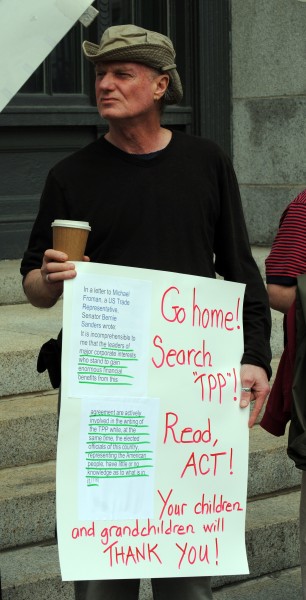 In a letter to Michael
Froman, a US Trade
Representative,
Senator Bernie
Sanders wrote:
It is incomprehensible
to me that the leaders of
major corporate interests
who stand to gain
enormous financial
benefits from this
agreement are actively
involved in the writing of
the TPP while, at the
same time, the elected
officials of this country,
representing the American
people, have little or no
knowledge as to what is in
Go home!
Search
"TPP"!
Read,
ACT!
Your children
and grandchildren will
THANK YOU!